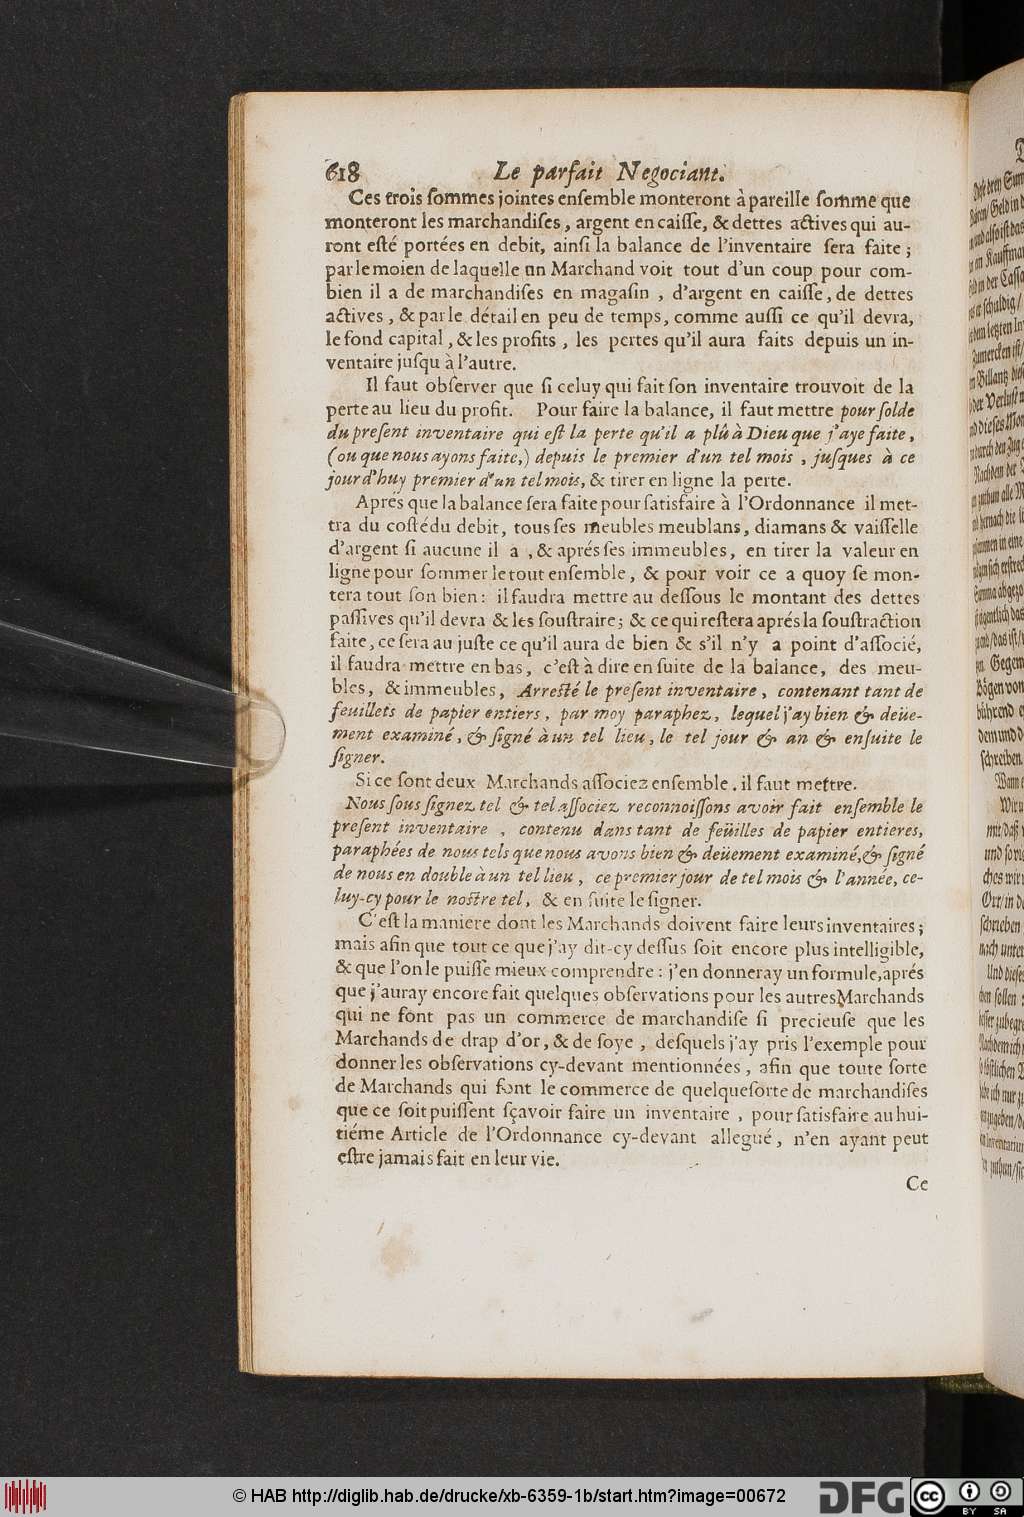 618 Le parfait Negociant.
Ces trois ſommes jointes enſemble monteront à pareille ſomme que
monteront les marchandiſes, argent en caiſſe, & dettes actives qui au-
ront eſté portées en debit, ainſi la balance de l'inventaire ſera faite;
par le moien de laquelle un Marchand voit tout d'un coup pour com-
bien il a de marchandiſes en magaſin, d'argent en caiſſe, de dettes
actives, & par le détail en peu de temps, comme auſſi ce qu'il devra,
le fond capital, & les profits, les pertes qu'il aura faits depuis un in-
ventaire juſqu à l'autre.
Il faut obſerver que ſi celuy qui fait ſon inventaire trouvoit de la
perte au lieu du profit. Pour faire la balance, il faut mettre pour ſolde
du preſent inventaire qui eſt la perte qu'il a plû à Dieu que j'aye faite,
(ou que nous ayons faite,) depuis le premier d'un tel mois, juſques à ce
jourd'huy premier d'un tel mois, & tirer en ligne la perte.
Aprés que la balance ſera faite pour ſatisfaire à l'Ordonnance il met-
tra du coſté du debit, tous ſes meubles meublans, diamans & vaiſſelle
d'argent ſi aucune il a, & aprés ſes immeubles, en tirer la valeur en
ligne pour ſommer le tout enſemble, & pour voir ce a quoy ſe mon-
tera tout ſon bien: il faudra mettre au deſſous le montant des dettes
paſſives qu'il devra & les ſouſtraire; & ce qui reſtera aprés la ſouſtraction
faite, ce ſera au juſte ce qu'il aura de bien & s'il n'y a point d'aſſocié,
il faudra mettre en bas, c'eſt à dire en ſuite de la balance, des meu-
bles, & immeubles, Arreſté le preſent inventaire, contenant tant de
feuillets de papier entiers, par moy paraphez, lequel j'ay bien & deüe-
ment examiné, & ſigné à un tel lieu, le tel jour & an & enſuite le
ſigner.
Si ce ſont deux Marchands aſſociez enſemble. il faut mettre.
Nous ſous ſignez tel & tel aſſociez reconnoiſſons avoir fait enſemble le
preſent inventaire, contenu dans tant de feüilles de papier entieres,
paraphées de nous tels que nous avons bien & deüement examiné, & ſigné
de nous en double à un tel lieu, ce premier jour de tel mois & l'année, ce-
luy-cy pour le noſtre tel, & en ſuite le ſigner.
C'eſt la maniere dont les Marchands doivent faire leurs inventaires;
mais afin que tout ce que j'ay dit-cy deſſus ſoit encore plus intelligible,
& que l'on le puiſſe mieux comprendre: j'en donneray un formule, aprés
que j'auray encore fait quelques obſervations pour les autres Marchands
qui ne ſont pas un commerce de marchandiſe ſi precieuſe que les
Marchands de drap d'or, & de ſoye, deſquels j'ay pris l'exemple pour
donner les obſervations cy-devant mentionnées, afin que toute ſorte
de Marchands qui font le commerce de quelque ſorte de marchandiſes
que ce ſoit puiſſent ſçavoir faire un inventaire, pour ſatisfaire au hui-
tiéme Article de l'Ordonnance cy-devant allegué, n'en ayant peut
eſtre jamais fait en leur vie.
Ce
© HAB http://diglib.hab.de/drucke/xb-6359-1b/start.htm?image=00672
DFG
cc BY SA